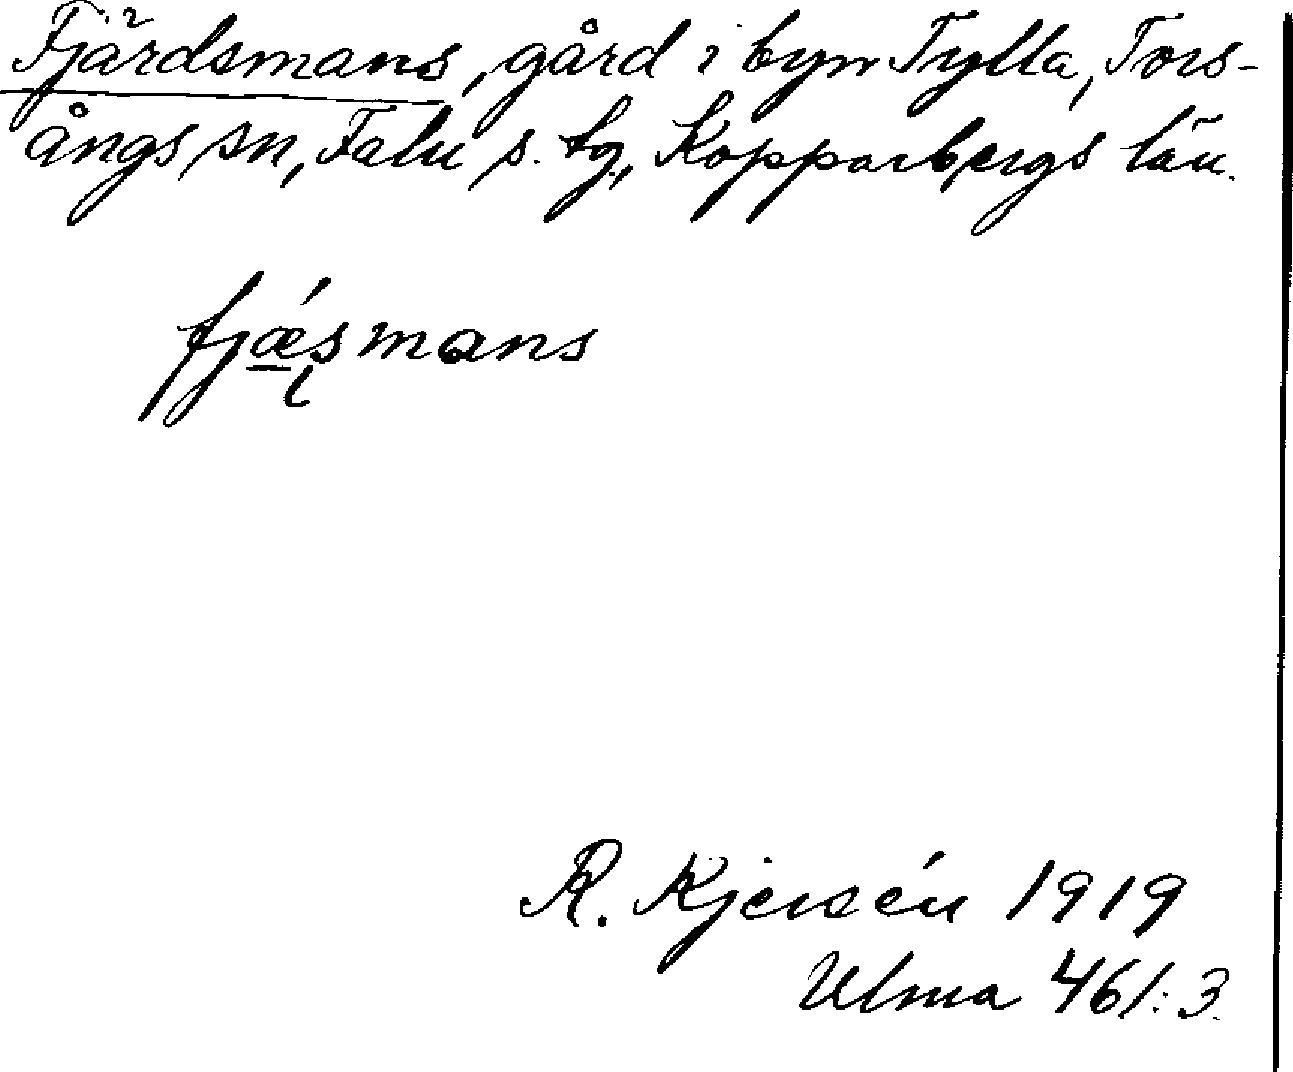 Fjärdsmans, gård i byn Tylla, Tors-
ångs sn, Falu s. tg., Kopparbergs län.
fjǽ̲s̨mans
R. Kjersén 1919
Ulma 461:3.